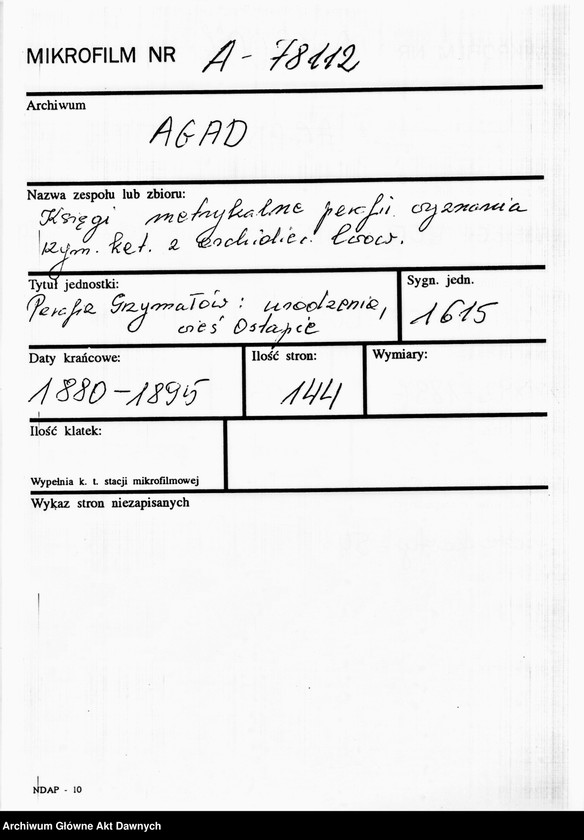 MIKROFILM NR A-78112
Archiwum
AGAD
Nazwa zespołu lub zbioru:
Księgi metrykalne parafii wyznania
rzym. kat. z archidiec. Lwow.
Tytuł jednostki:
Sygn. jedn.
Parafia Grzymałów: urodzenia,
wieś Ostapie
1615
Daty krańcowe:
Ilość stron:
Wymiary:
1880-1895
144
Ilość klatek:
Wypełnia k. t. stacji mikrofilmowej
Wykaz stron niezapisanych
NDAP - 10
Archiwum Główne Akt Dawnych